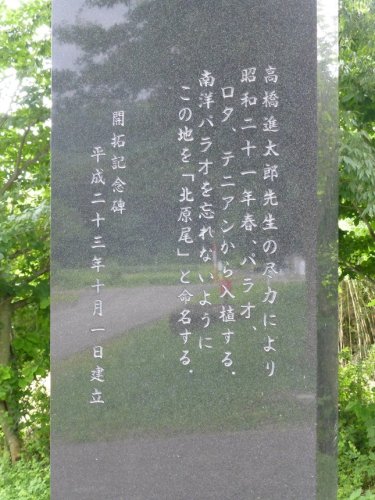 高橋進太郎先生の尽力により
昭和二十一年春、パラオ、
ロタ、テニアンから入植する.
南洋パラオを忘れないように
この地を「北原尾」と命名する.
開拓記念碑
平成二十三年十月一日建立